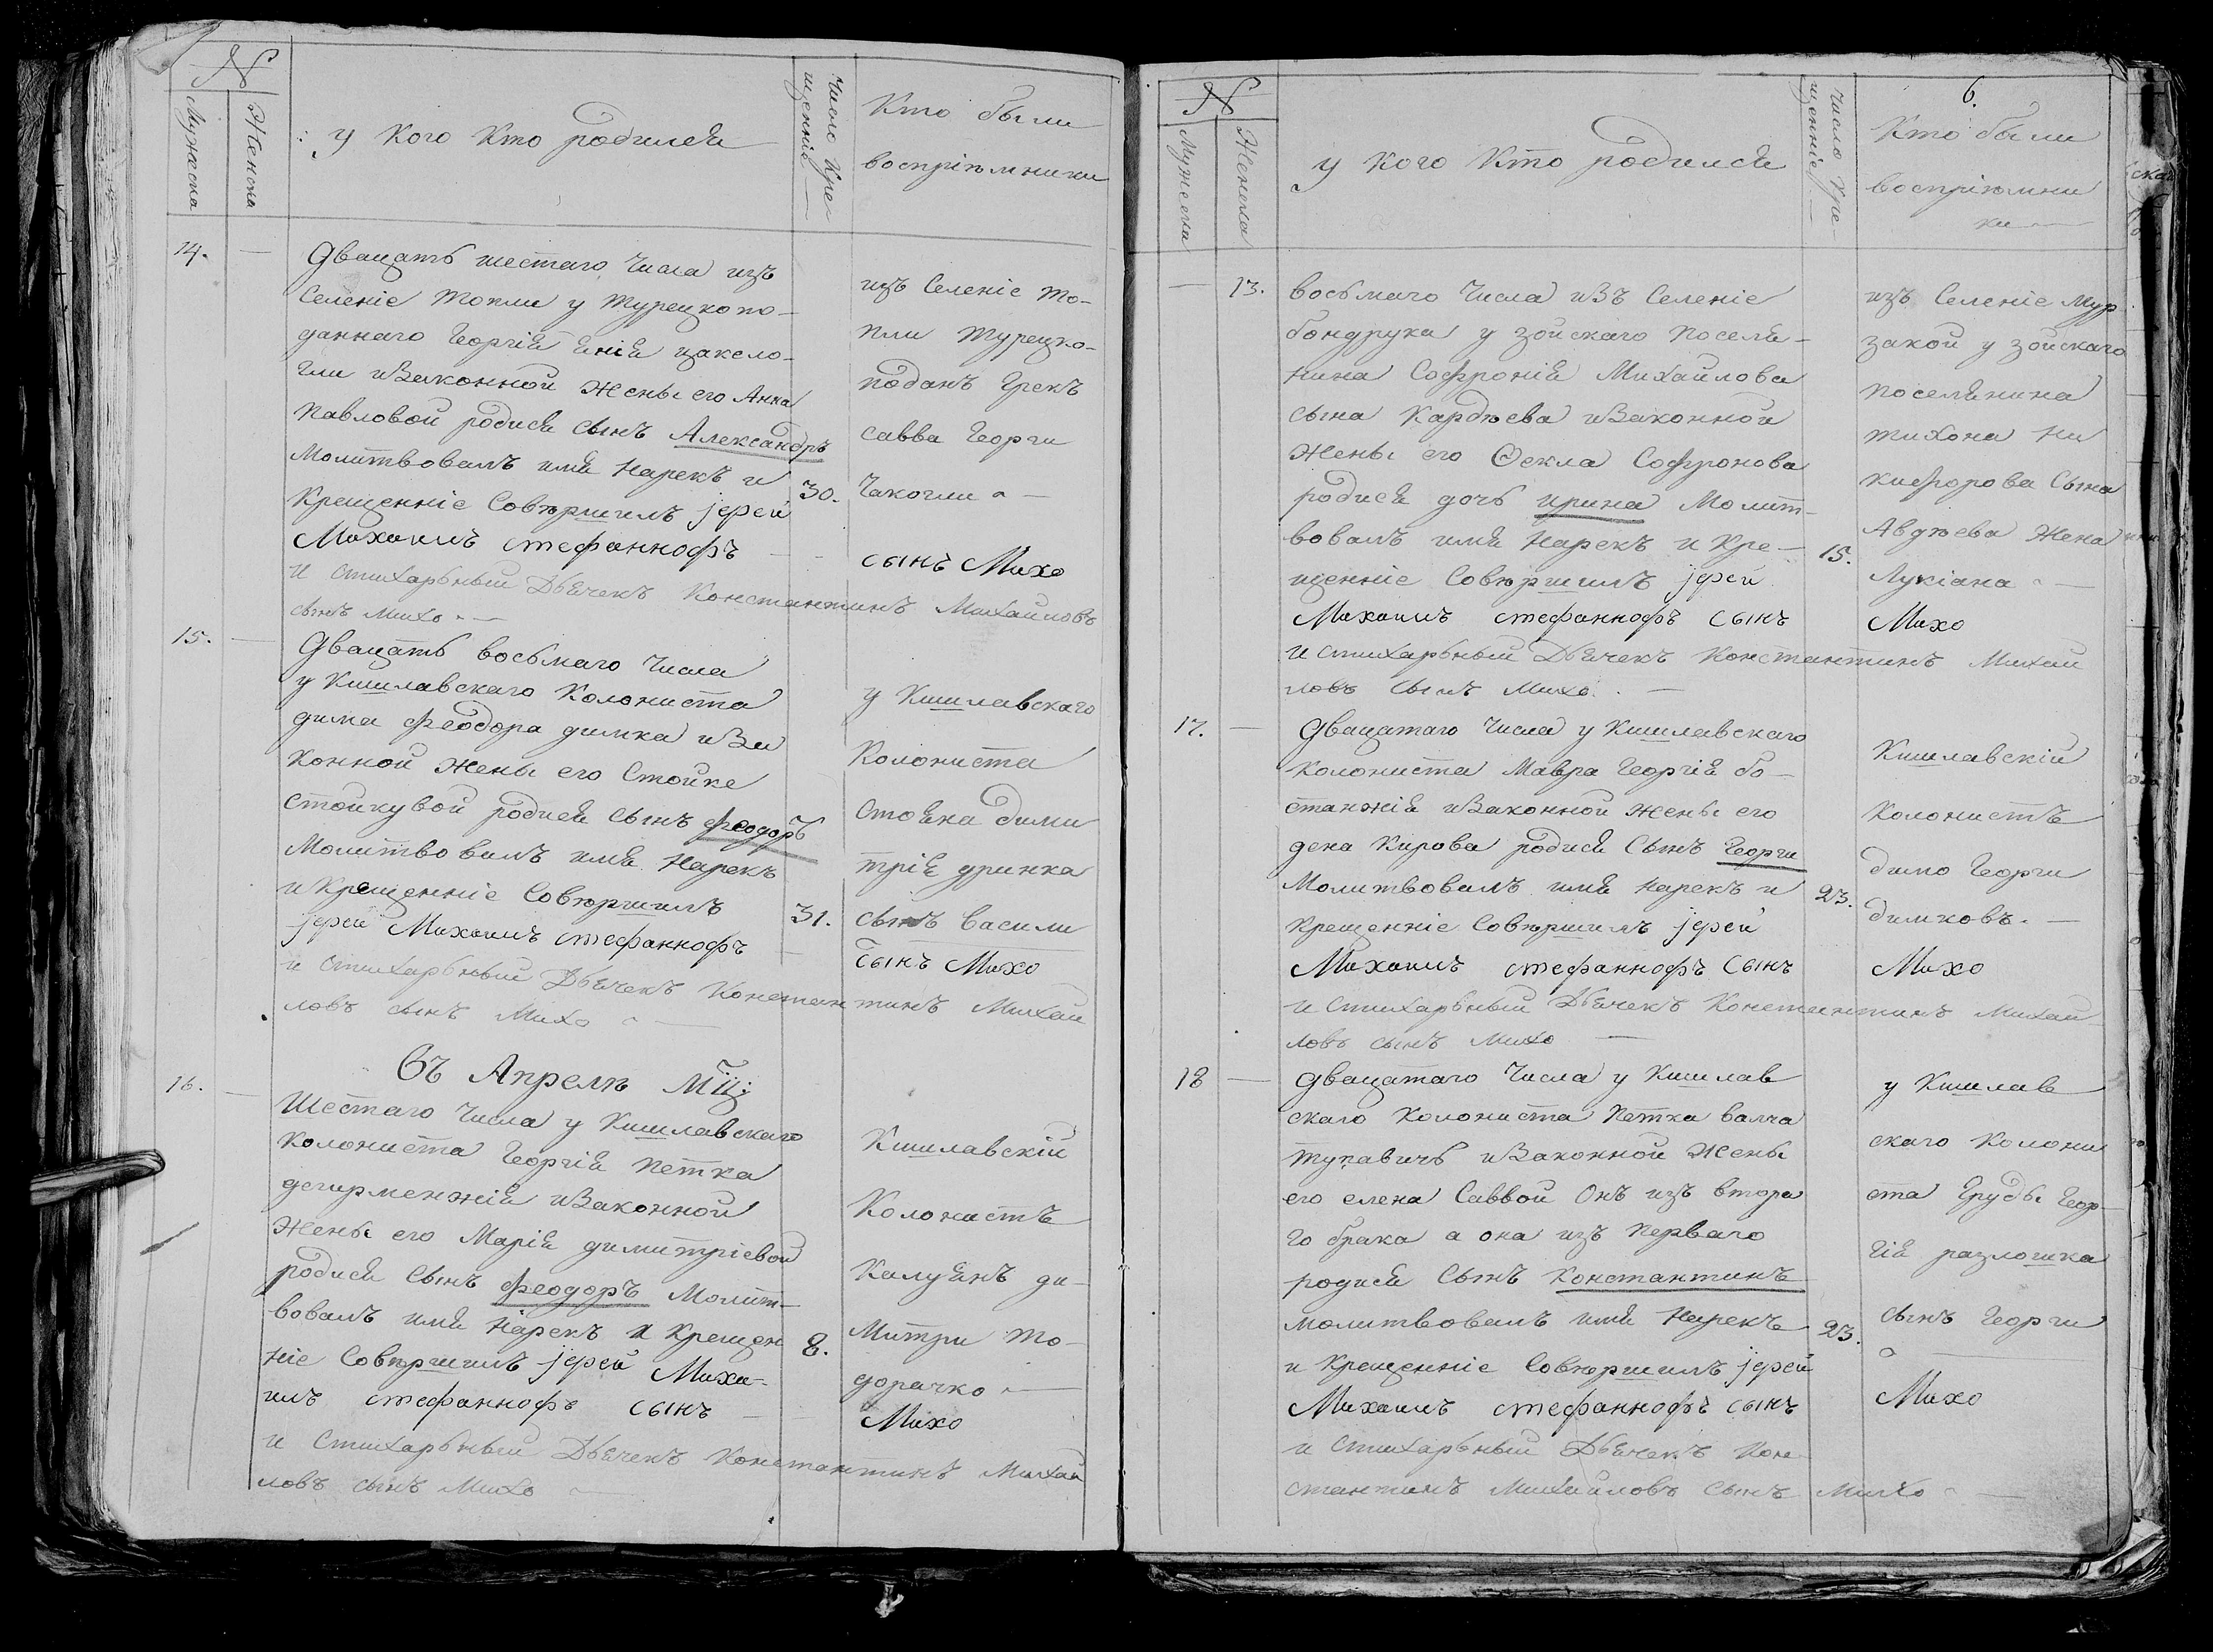 №
Мужеска
Женска
у кого кто родилса
число кре-
щенніе
Кто были
воспріѣмники
14.
Двацать шестаго числа изъ
селеніе топли у турецкопо-
даннаго Георгій
гли изаконной жены его Анна
Павловой родися сынъ Александръ
молитвовалъ имя нарекъ и
крещенніе совѣршилъ јерей
Михаилъ стефаннофъ
и стихарьный Дьячекъ Константинъ Михайловъ
сынъ михо
30.
изъ селеніе то-
пли турецко-
поданъ Грекъ
савва Георги
Чакогли
сынъ Михо
15.
Двацать восьмаго числа
у Кишлавскаго колониста
дима феодора димка иза
конной жены его Стойке
стойкувой родися сынъ феодоръ
молитвовалъ имя нарекъ
и крещенніе совѣршилъ
јерей Михаилъ стефаннофъ
и стихарьный Дьячекъ Константинъ Михай
ловъ сынъ Михо
31.
у Кишлавскаго
колониста
стояна дими
трія дринка
сынъ васили
сынъ Михо
Въ Апрелѣ мцѣ
16.
Шестаго числа у Кишлавскаго
колониста Георгія Петка
дегирменжія изаконной
жены его Марія димитріевой
родися сынъ феодоръ молит-
вовалъ имя нарекъ и крещен
ніе совѣршилъ јерей Миха-
илъ стефаннофъ сынъ
и стихарьный Дьячекъ Константинъ Михай
ловъ сынъ Михо
8.
Кишлавскій
колонистъ
Калуянъ ди-
митри то-
дорачко
Михо
6.
№
Мужеска
Женска
у кого кто родился
число кре-
щенніе
Кто были
воспріѣмни
ки
13.
восьмаго числа изъ селеніе
бондрука у зойскаго поселя-
нина Софронія Михайлова
сына Кардѣева изаконной
жены его Ѳекла Софронова
родися дочь ирина молит-
вовалъ имя нарекъ и кре-
щенніе совѣршилъ јерей
Михаилъ стефаннофъ сынъ
и стихарьный Дьячекъ Константинъ Михай
ловъ сынъ Михо
15.
изъ селеніе мур
закой у зойскаго
поселянина
тихона ни
кифорова сына
Авдѣева жена
Лукіана
Михо
17.
Двацатаго числа у Кишлавскаго
колониста Мавра Георгія бо-
станжія изаконной жены его
дена Кирова родися сынъ Георги
молитвовалъ имя нарекъ и
крещенніе совѣршилъ јерей
Михаилъ стефаннофъ сынъ
и стихарьный Дьячекъ Константинъ Михай-
ловъ сынъ Михо
23.
Кишлавскій
колонистъ
димо Георги
димковъ.
Михо
18
Двацатаго числа у Кишлав
скаго колониста Петка валча
тупавичь изаконной жены
его елена Саввой Онъ изъ втора
го брака а она изъ перваго
родися сынъ Константинъ
молитвовалъ имя нарекъ
и крещенніе совѣршилъ јерей
Михаилъ стефаннофъ сынъ
и стихарьный Дьячекъ Кон-
стантинъ Михайловъ сынъ Михо
23.
у Кишлав
скаго колони
ста Груды Геор-
гія разложка
сынъ Георги
Михо